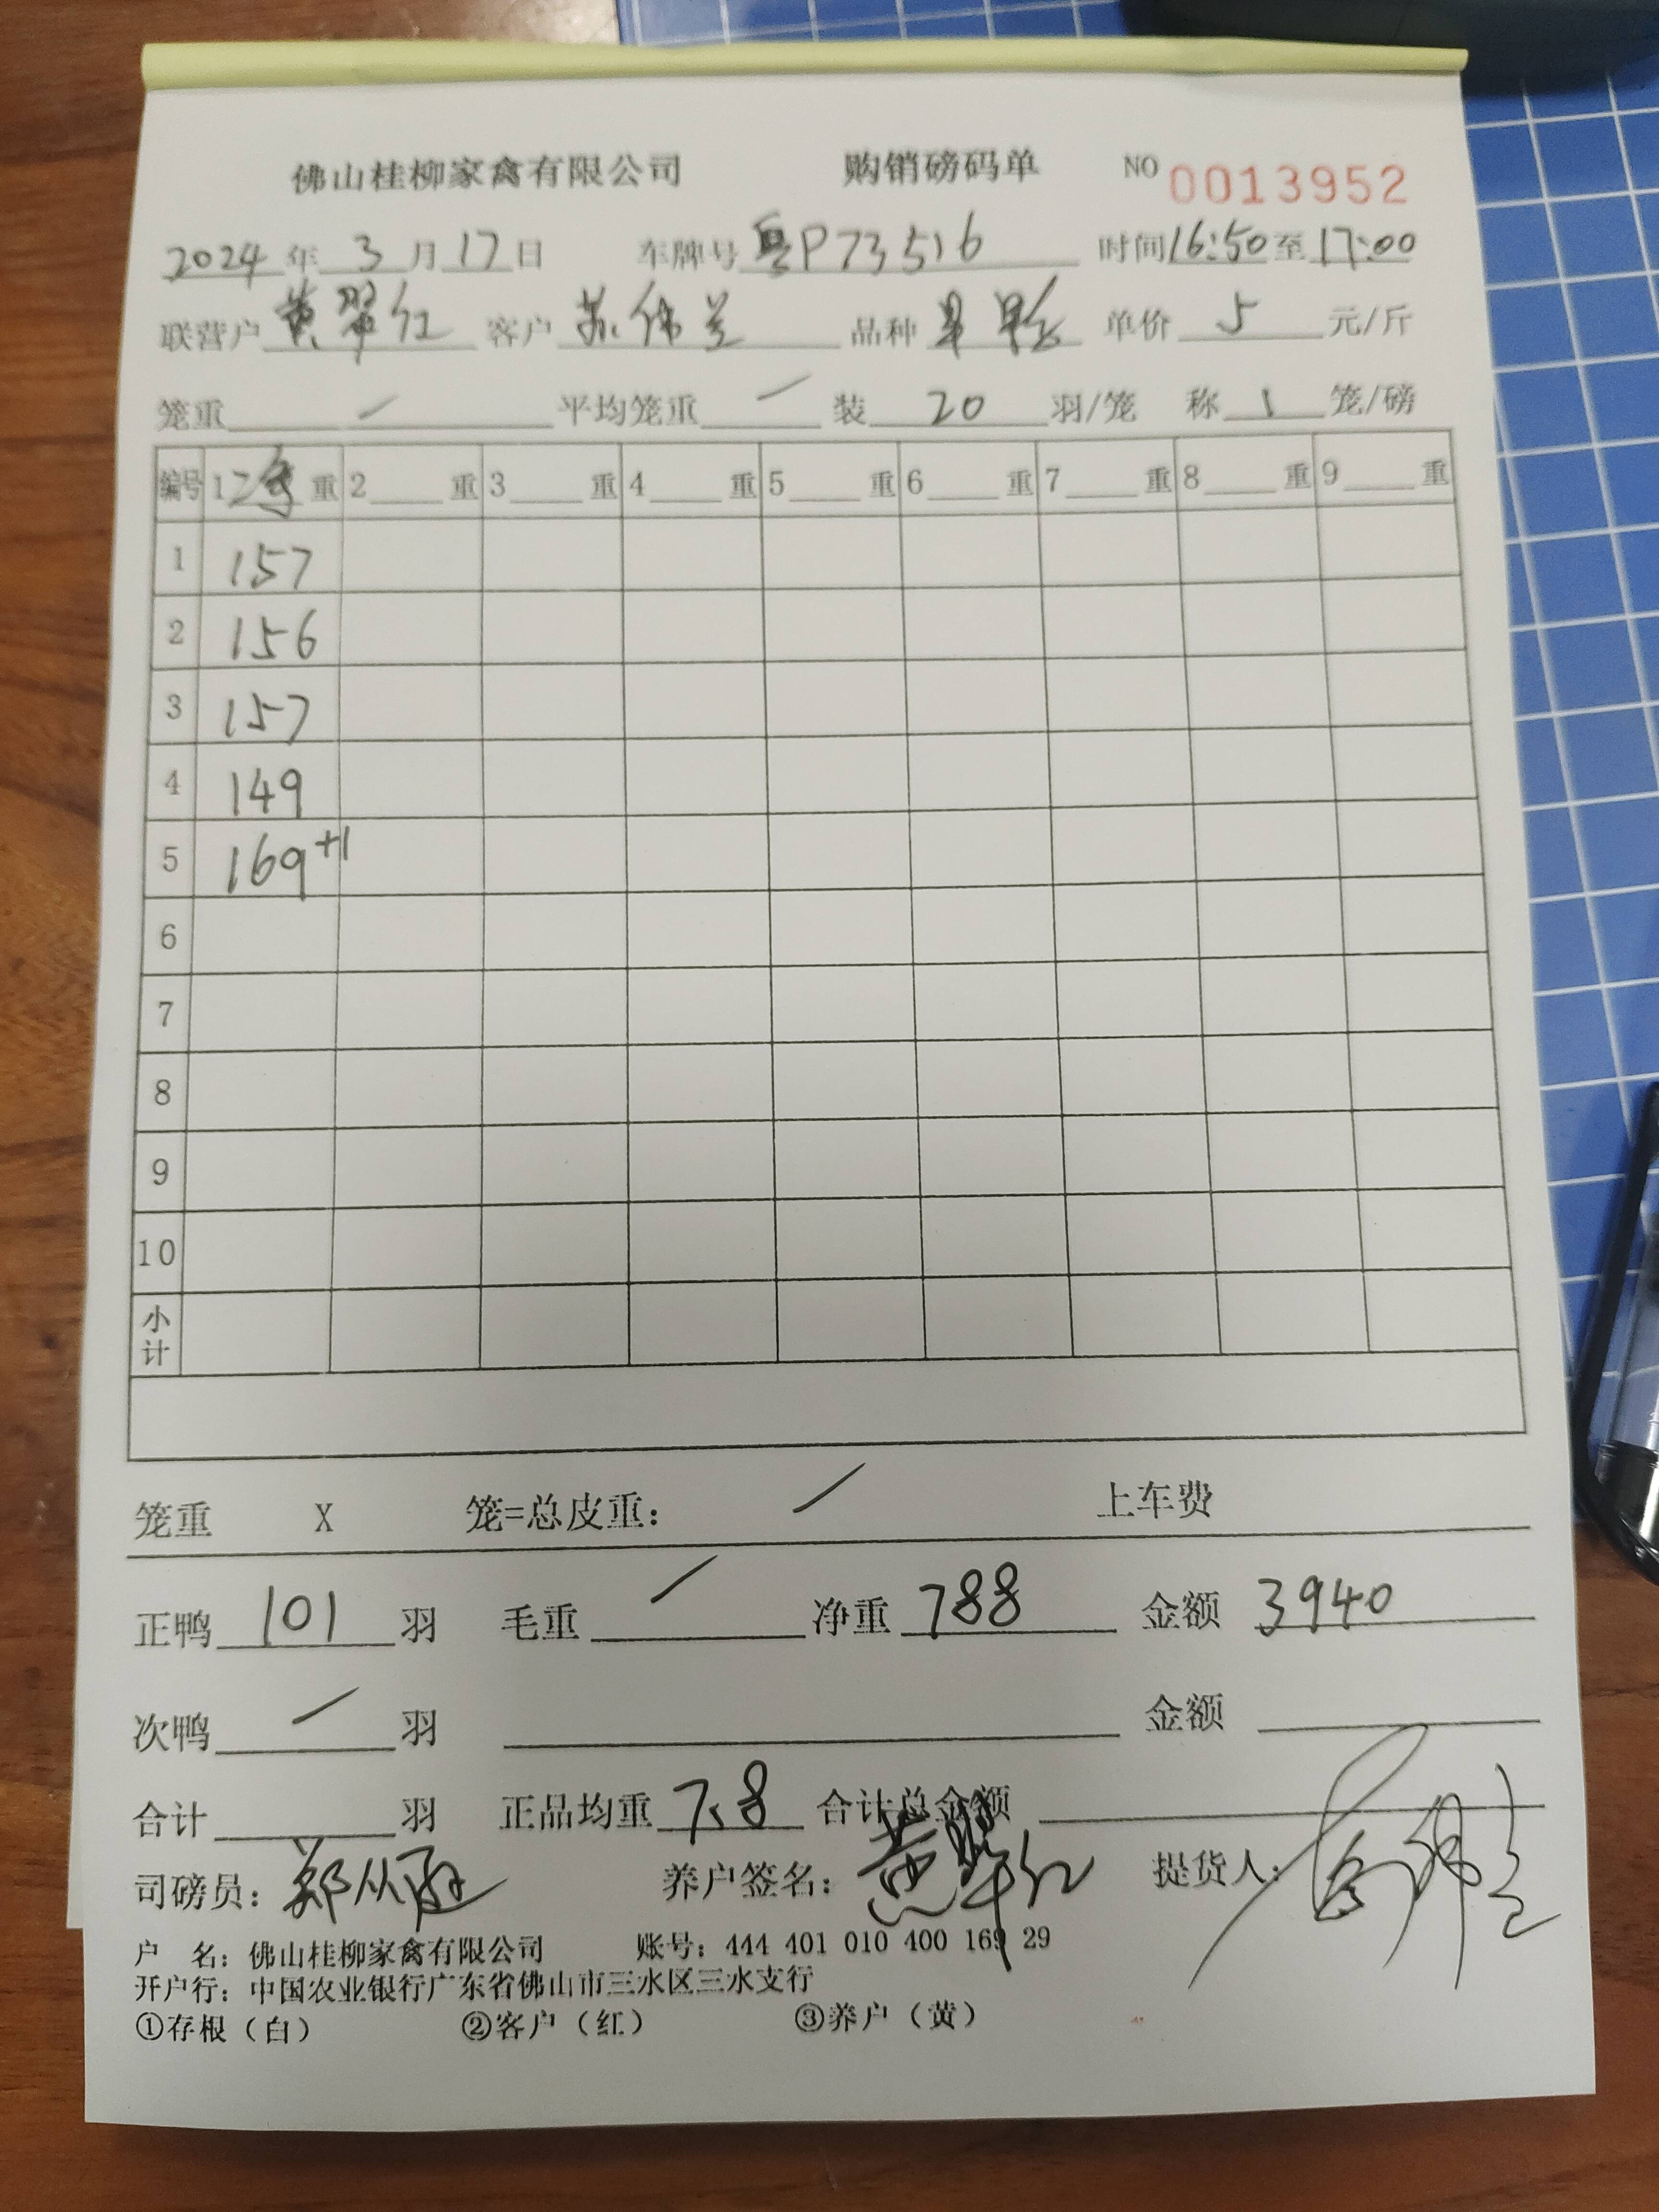 佛山桂柳家禽有限公司 购销磅码单 NO 0013952
2024 年 3 月 17 日 车牌号 粤P73516 时间 16:50 至 17:00
联营户 黄翠红 客户 苏伟兰 品种 单价 5 元/斤
笼重 / 平均笼重 / 装 20 羽/笼 称 1 笼/磅
编号 1 重 2 重 3 重 4 重 5 重 6 重 7 重 8 重 9 重
1 157
2 156
3 157
4 149
5 169+1
6
7
8
9
10
小计
笼重 X 笼=总皮重: / 上车费
正鸭 101 羽 毛重 / 净重 788 金额 3940
次鸭 / 羽 金额
合计 羽 正品均重 7.8 合计总金额
司磅员: 养户签名: 黄翠红 提货人:
户 名: 佛山桂柳家禽有限公司 账号: 444 401 010 400 169 29
开户行: 中国农业银行广东省佛山市三水区三水支行
①存根（白） ②客户（红） ③养户（黄）